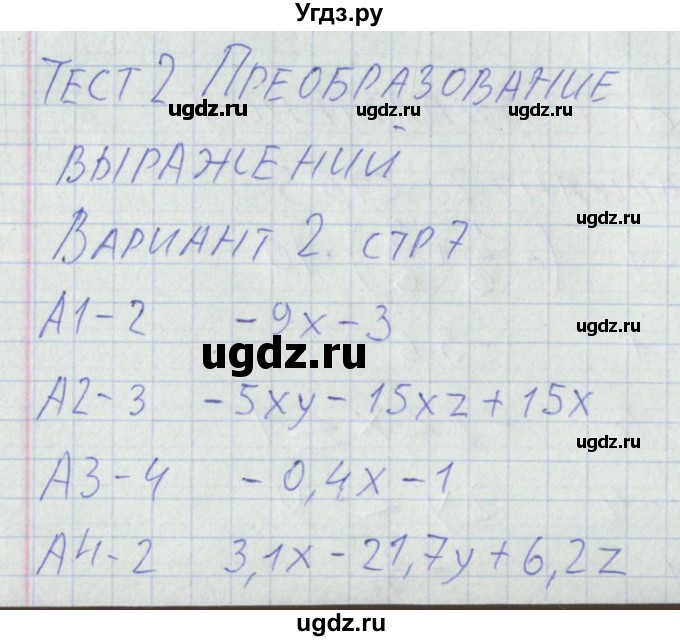 Угдз.ру
ТЕСТ 2 ПРЕОБРАЗОВАНИЕ
ugdz.ru ugdz.ru
ВЫРАЖЕНИЙ
ugdz.ru
ВАРИАНТ 2. СТР 7
А1-2 -9x-3
ugdz.ru
ugdz.ru
А2-3 -5xy-15xz+15x
ugdz.ru
А3-4 -0,4x-1
А4-2 3,1x-21,7y+6,2z
ugdz.ru ugdz.ru